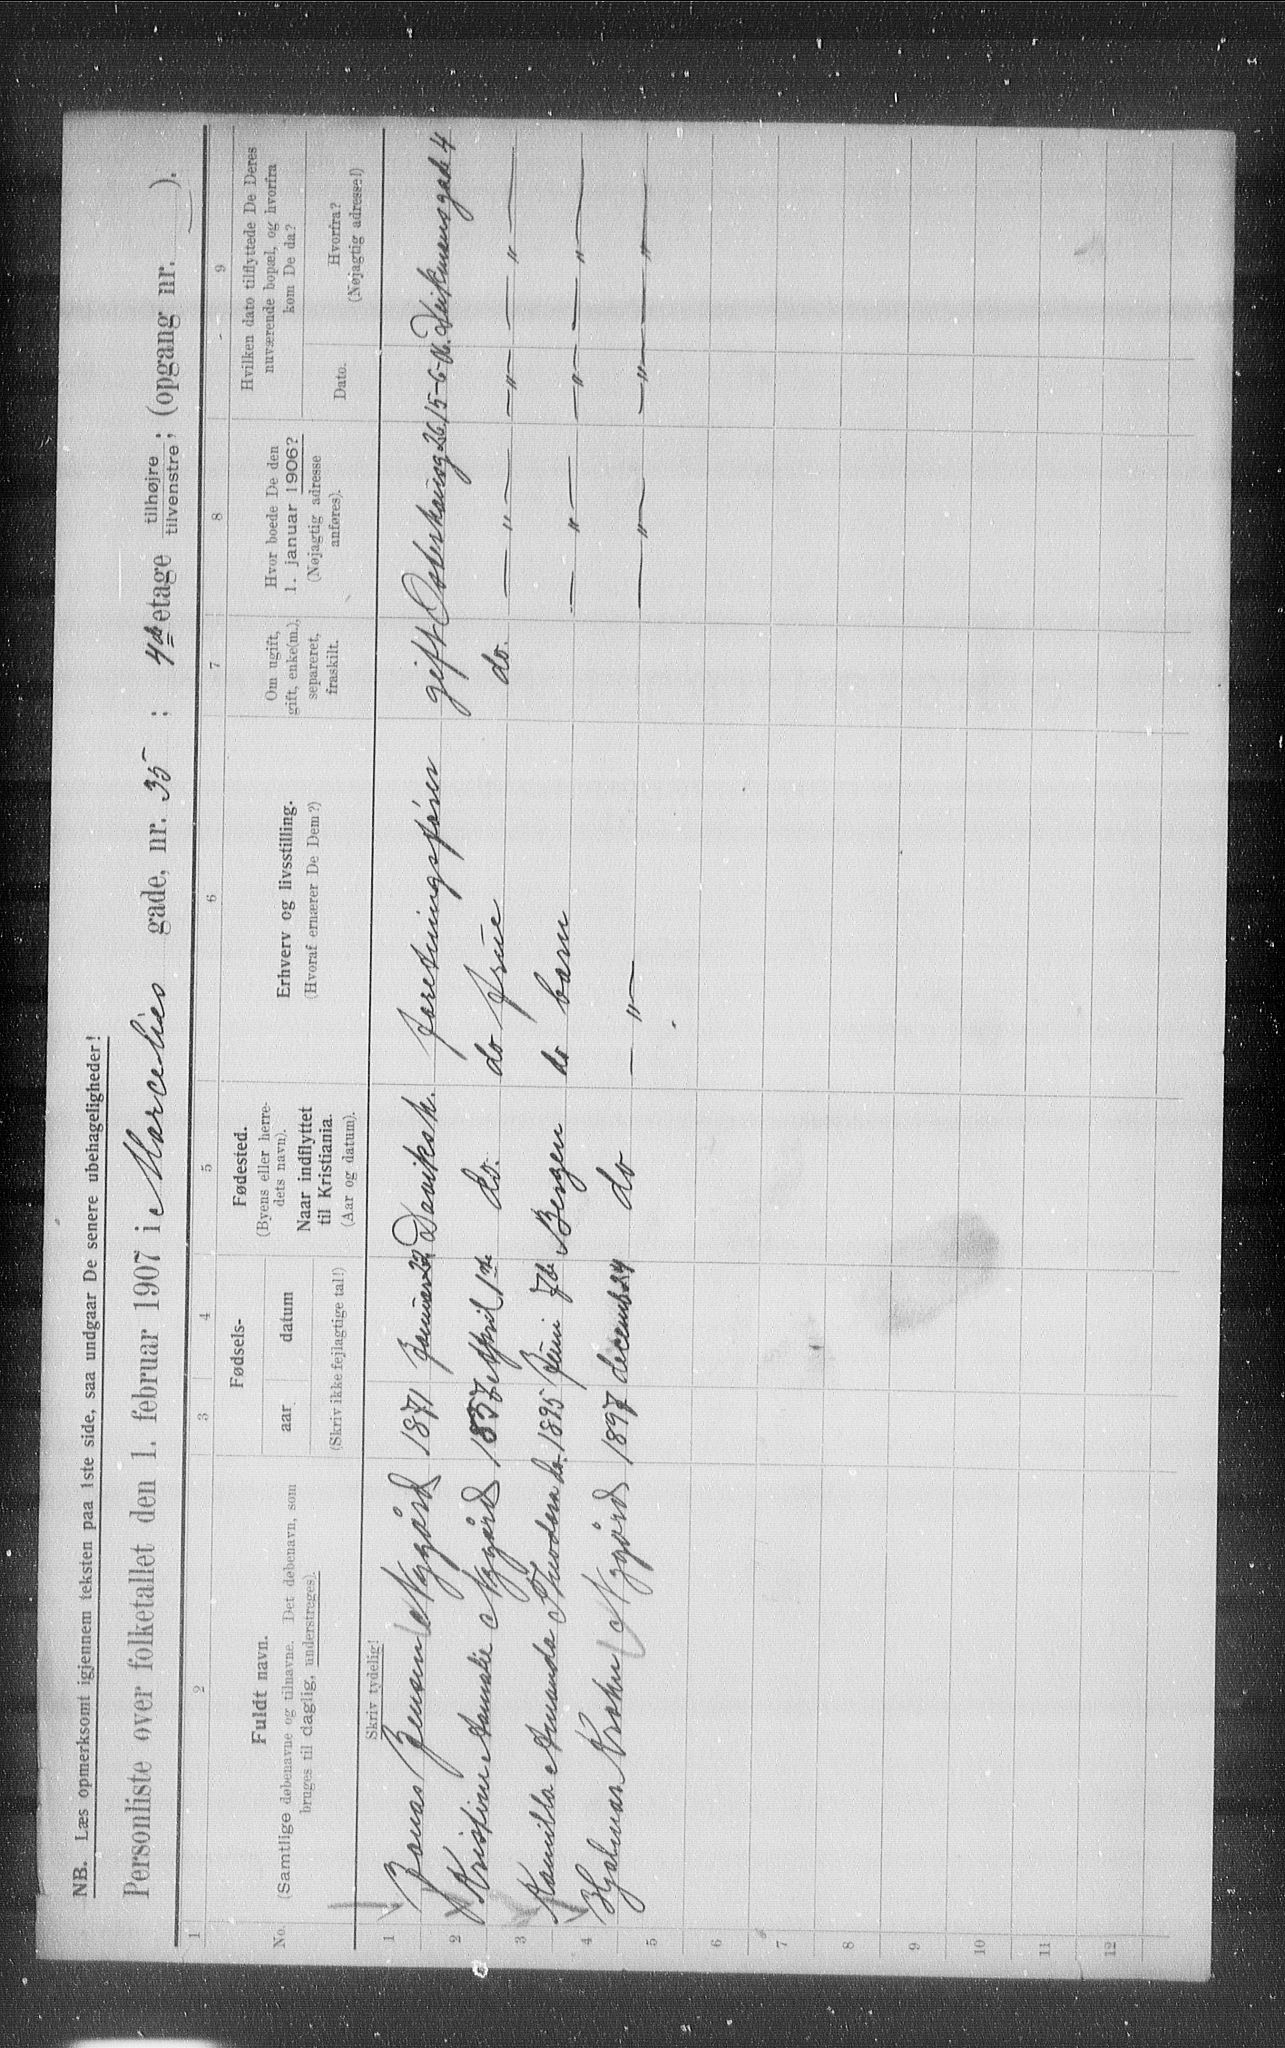 NB. Læs opmerksomt igjennem teksten paa 1ste side, saa undgaar De senere ubehageligheder!
Personliste over folketallet den 1. februar 1907 i Marcelies gade, nr. 35 ; 4de etage tilhøjre tilvenstre; (opgang nr. ).
1 2 3 4 5 6 7 8 9
No. Fuldt navn. (Samtlige døbenavne og tilnavne. Det døbenavn, som bruges til daglig, understreges).
Fødsels- aar datum
Fødested. (Byens eller herredets navn). Naar indflyttet til Kristiania. (Aar og datum).
Erhverv og livsstilling. (Hvoraf ernærer De Dem?)
Om ugift, gift, enke(m.), separeret, fraskilt.
Hvor boede De den 1. januar 1906? (Nøjagtig adresse anføres).
Hvilken dato tilflyttede De Deres nuværende bopæl, og hvorfra kom De da?
Dato. Hvorfra? (Nøjagtig adresse!)
Skriv tydelig! (Skriv ikke fejlagtige tal!)
1 Jonas Jensen Nygård 1871 Januar 22 Davikske. forretningsfører gift Osterhausg 26 15-6-06. Deikmansgade 4
2 Kristine Amalie Nygård 1857 April 1ste do. do frue do. — " — — " — — " —
3 Kamilla Amanda Theodora do. 1895 Juni 7de Bergen do barn — " — — " — — " —
4 Hjalmar Krohn Nygård 1897 december 24 do — " — — " — — " — — " —
5
6
7
8
9
10
11
12